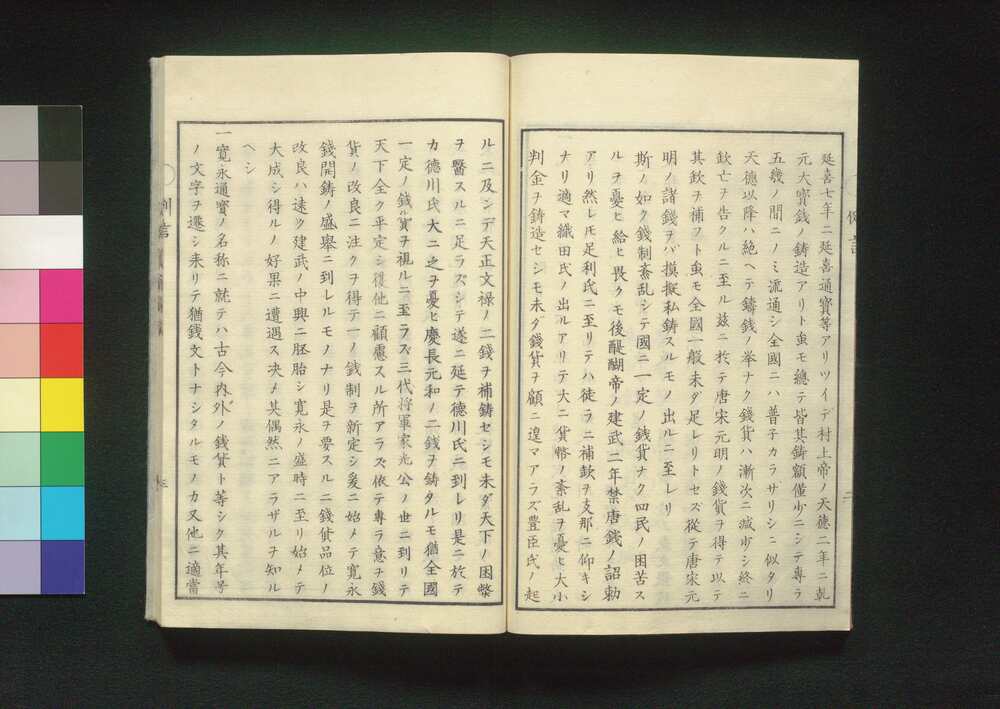 延喜七年ニ延喜通寳等アリツイデ村上帝ノ天德二年ニ乹
元大寳錢ノ鋳造アリト虽モ總テ皆其鋳額僅少ニシテ專ラ
五幾ノ間ニノミ流通シ全國ニハ普子カラサリシニ似タリ
天德以降ハ絶ヘテ鑄錢ノ挙ナク錢貨ハ漸次ニ減少シ終ニ
欽亡ヲ告クルニ至ル茲ニ扵テ唐宋元明ノ錢貨ヲ得テ以テ
其欽ヲ補フト虽モ全國一般未ダ足レリトセズ從テ唐宋元
明ノ諸錢ヲバ摸擬私鋳スルモノ出ルニ至レリ
斯ノ如ク錢制紊乱シテ國ニ一定ノ錢貨ナク四民ノ困苦ス
ルヲ憂ヒ給ヒ畏クモ後醍醐帝ノ建武二年禁唐錢ノ詔勅
アリ然レ𪜈足利氏ニ至リテハ徒ラニ補欽ヲ支那ニ仰キシ
ナリ適マ織田氏ノ出ルアリテ大ニ貨幣ノ紊乱ヲ憂ヒ大小
判金ヲ鋳造セシモ未ダ錢貨ヲ顧ニ遑マアラズ豊臣氏ノ起
ルニ及ンデ天正文禄ノ二錢ヲ補鋳セシモ未ダ天下ノ困幣
ヲ醫スルニ足ラズシテ遂ニ延テ德川氏ニ到レリ是ニ扵テ
カ德川氏大ニ之ヲ憂ヒ慶長元和ノ二錢ヲ鋳タルモ猶全國
一定ノ錢貨ヲ視ルニ至ラズ三代将軍家光公ノ世ニ到リテ
天下全ク平定シ復他ニ顧慮スル所アラズ依テ專ラ意ヲ錢
貨ノ改良ニ注クヲ得テ一ノ錢制ヲ新定シ爰ニ始メテ寛永
錢開鋳ノ盛舉ニ到レルモノナリ是ヲ要スルニ錢貨品位ノ
改良ハ遠ツ建武ノ中興ニ胚胎シ寛永ノ盛時ニ至リ始メテ
大成シ得ルノ好果ニ遭遇ス决メ其偶然ニアラザルヲ知ル
ヘシ
一寛永通寳ノ名称ニ就テハ古今内外ノ錢貨ト等シク其年号
ノ文字ヲ遷シ来リテ猶錢文トナシタルモノカ又他ニ適當